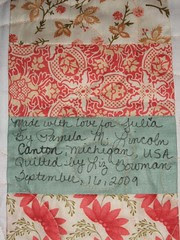 Made with love for Julia
By Pamela M. Lincoln
Canton, Michigan, USA
Quilted by Liz Bowman
September, 16, 2009